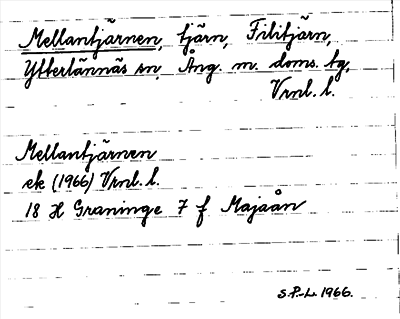 Mellantjärnen, tjärn, Filitjärn,
Ytterlännäs sn, Ång. m. doms. tg,
Vrnl. l.
Mellantjärnen
ek (1966) Vrnl. l.
18 H Graninge 7 f Majaån
S.P.-L. 1966.